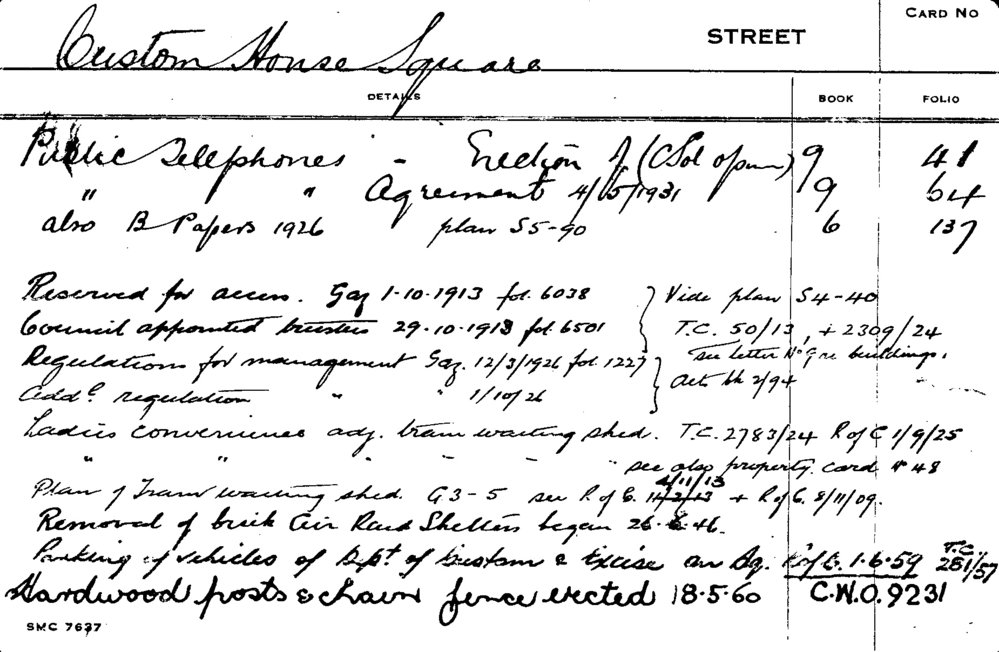 CARD NO
Custom House Square STREET
DETAILS BOOK FOLIO
Public Telephones - Erection of (C Sol opinn) 9 41
" " Agreement 4/5/1931 9 64
also B Papers 1926 plan S5-90 6 137
Reserved for access. Gaz 1-10-1913 fol. 6038 } Vide plan S4-40
Council appointed trustees 29-10-1913 fol. 6501 T.C. 50/13, + 2309/24
Regulations for management Gaz. 12/3/1926 fol. 1227 } see letter re buildings.
Addl. regulation " 1/10/26 Act bk 2/94
Ladies convenience adj. tram waiting shed. T.C. 2783/24 R of C 1/9/25
" " " " " see also property card # 48
4/11/13
Plan of Tram waiting shed. G3-5 see R of C. + R of C. 8/11/09.
Removal of brick Air Raid Shelters began 26-6-46.
Parking of vehicles of Dept of Custom & Excise on Sq. R of C. 1.6.59 T.C. 251/57
Hardwood posts & chain fence erected 18.5.60 C.W.O. 9231
SMC 7637